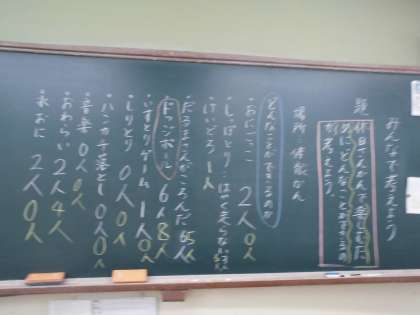 みんなで考えよう
題 休日くんかんで楽しむた
めにどんなことができるの
か考えよう。
場所 体育かん
どんなことができるのか
・おにごっこ 2人 0人
・しっぽとり:はやく走らない
・けいどろ 1人
・だるまさんがころんだ 65人
・ドッジボール 6人 8人
・いすとりゲーム 1人 0人
・しりとり 0人 0人
・ハンカチ落とし 0人 0人
・音楽 0人 0人
・おわらい 2人 4人
・氷おに 2人 0人